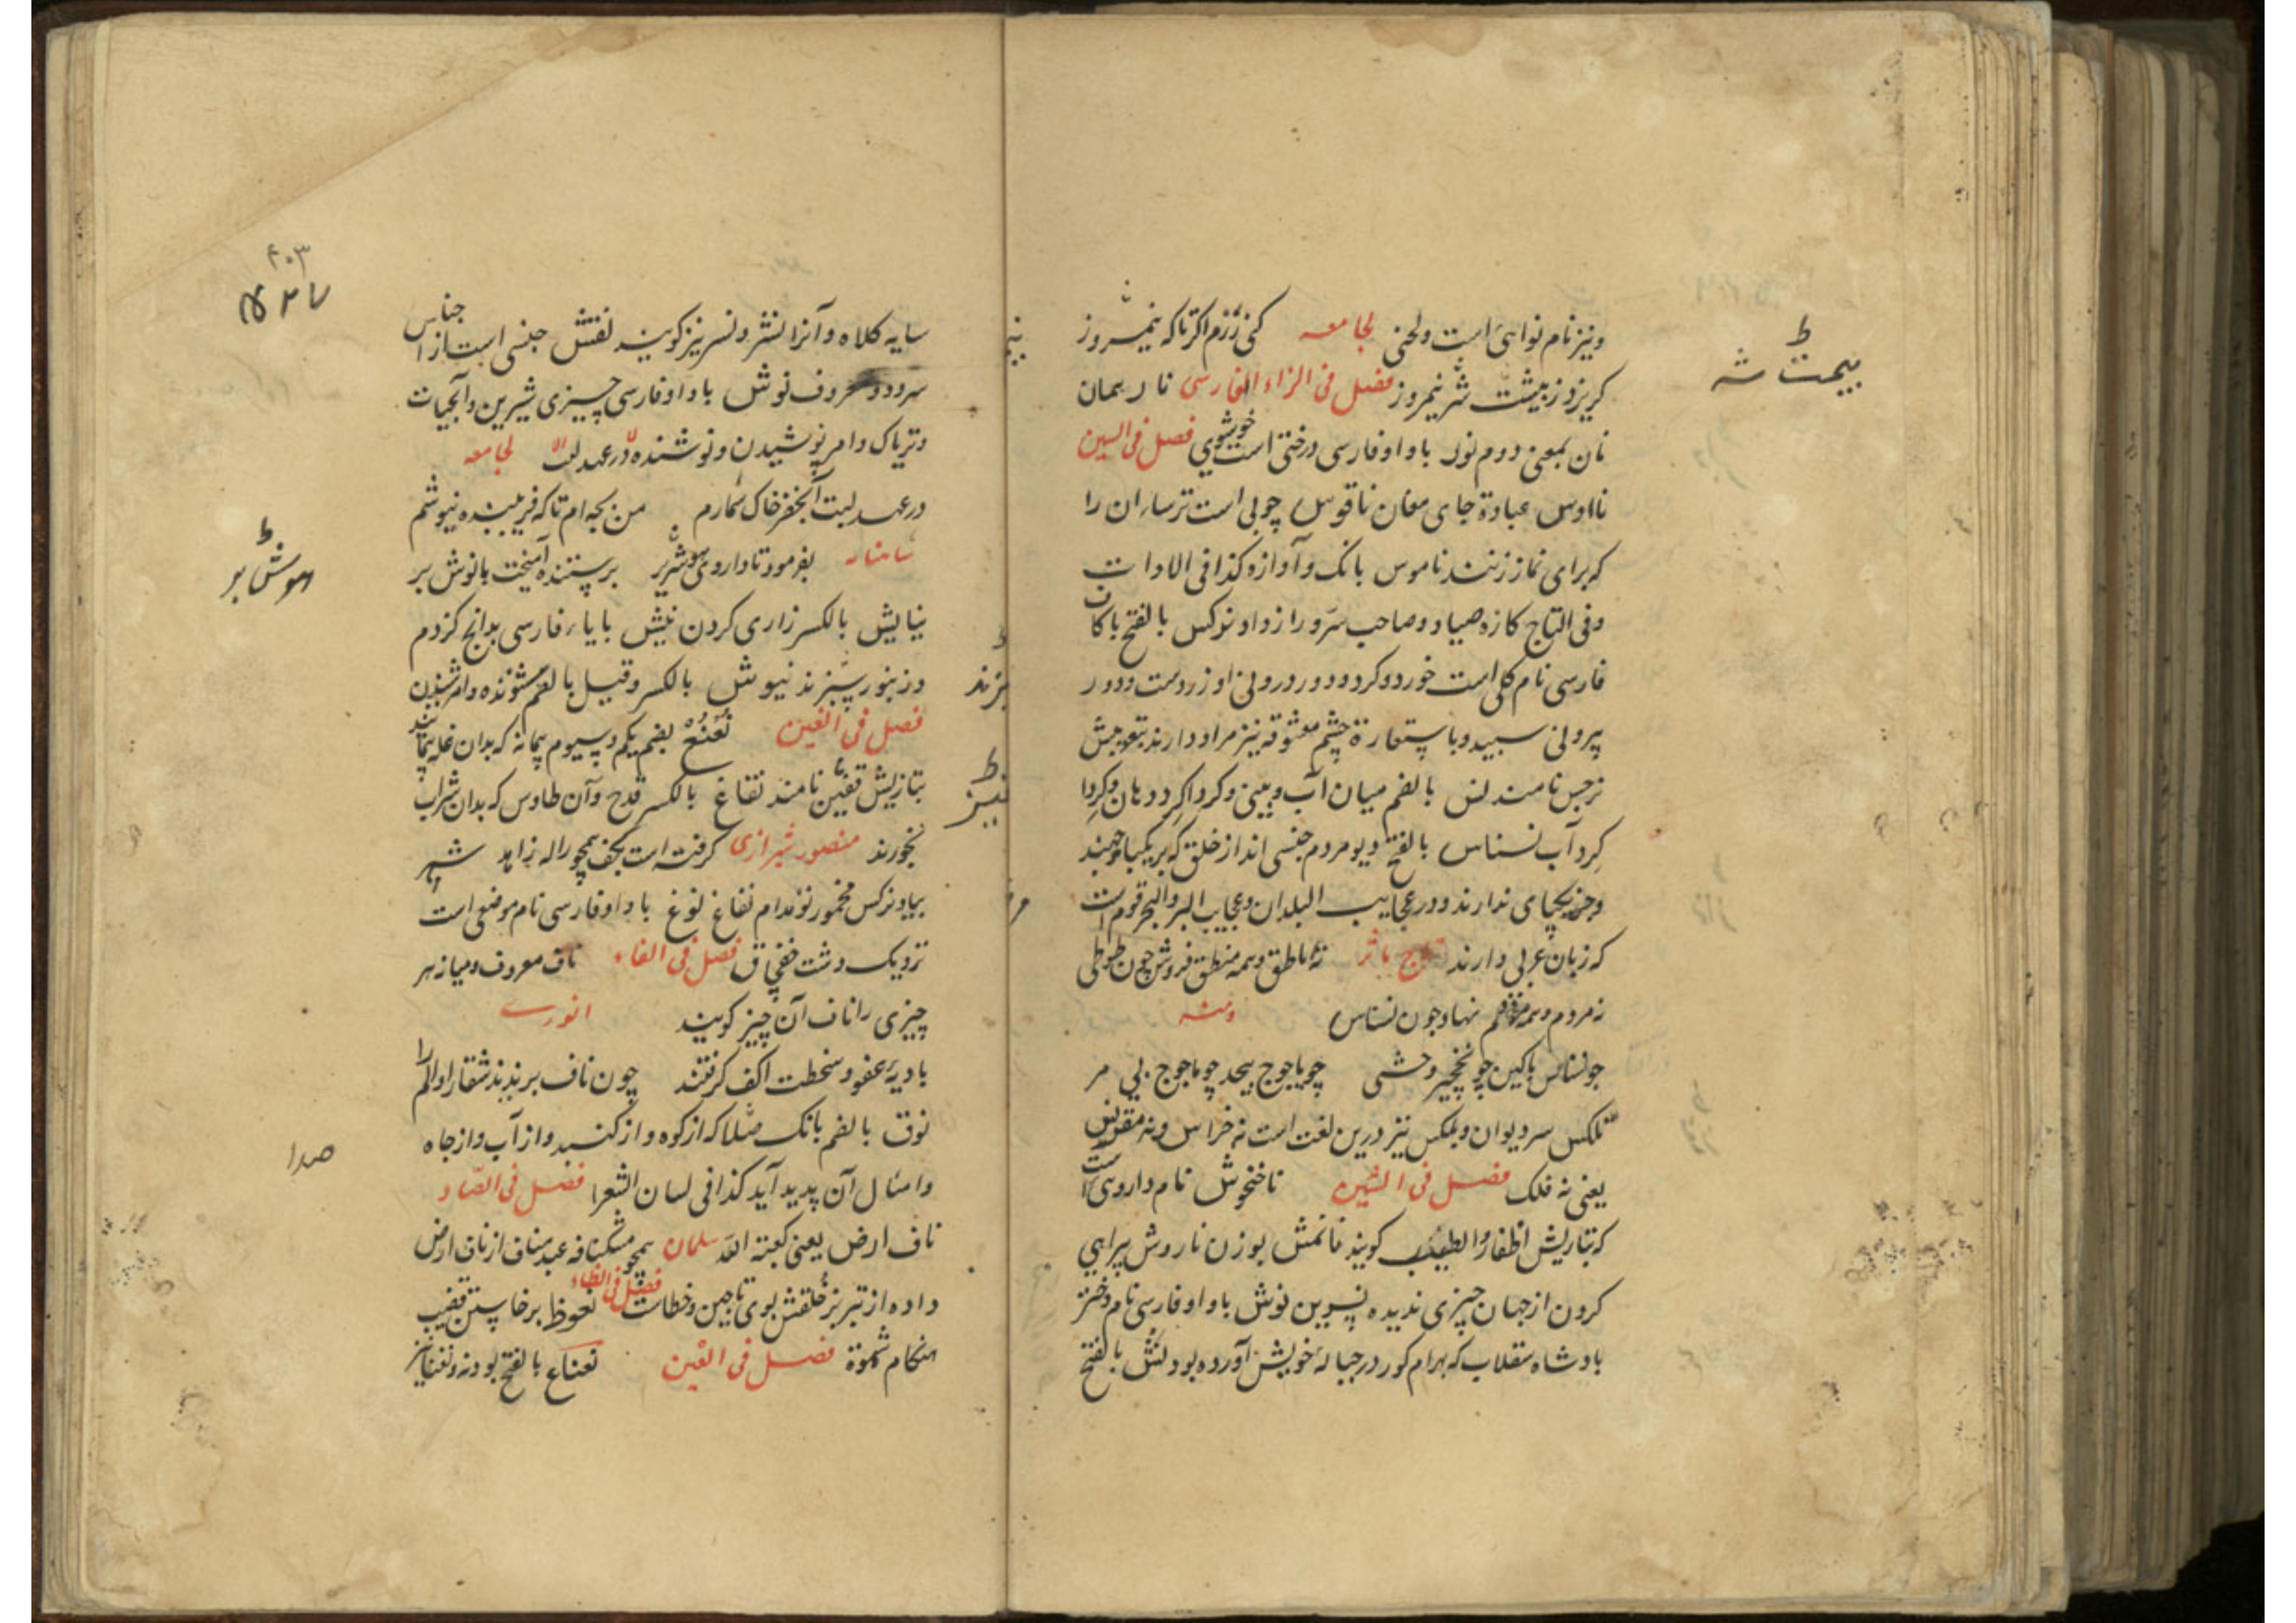 ونیز نام نوائی است ولحنی لجامعه کنی رزم اگر تا که نیمروز
کریزوز بهشت شر نیمروز فصل فی الزاء الفارسی ناژ ریسمان
نان بمعنی دوم نوژ باواو فارسی درختی است خوشبوی فصل فی السین
ناوس عبادة جای مغان ناقوس چوبی است ترساان را
که برای نماز زنند ناموس بانک وآوازه کذا فی الادات
وفی التاج کازه صیاد وصاحب سر ورازدار نرکس بالفتح باکاف
فارسی نام کلی است خورد وکرد ودور درونی او زردست ودور
بیرونی سپید وباستعارة چشم معشوقه نیز مراد دارند بتعریبش
نرجس نامند نس بالضم میان آب وبینی وکرداکرد دهان وکردا
کرد آب نسناس بالفتح دیو مردم جنسی اند از خلق که بر یکپا جهند
وجز یکپای ندارند ودر عجایب البلدان وعجایب البر والبحر قوم است
که زبان عربی دارند نه ناطق وهمه منطق فروش چون طوطی
نه مردم وهمه مردم نهاد چون نسناس ومنه
چو نسناس باکین چو نخچیر وحشی چو یاجوج بیحد چو ماجوج بی مر
نکس سر دیوان وبلکس نیز درین لغت است نه خراس ونه مقرنس
یعنی نه فلک فصل فی الشین ناخنخوش نام داروی است
که بتازیش اظفار الطیب کویند نانمش بوزن ناروش پیراهی
کردن از جهان چیزی ندیده نسرین نوش باواو فارسی نام دختر
بادشاه سقلاب که بهرام کور در حبالهٔ خویش آورده بود نش بالفتح
بیمت شه
سایه کلاه وآنرا نشر ونسر نیز کویند نقش جنسی است از اجناس
سرود ومعروف نوش باواو فارسی چیزی شیرین وآبحیات
وتریاک وامر نوشیدن ونوشنده در عهد لجامعه
در عهد لبت آبخضر خاک شمارم من بچه ام تا که فریبنده نیوشم
شاهنامه بفرمود تا داروی هوش بر پرستنده آمیخت بانوش بر
نیایش بالکسر زاری کردن نیش بایاء فارسی بدانچ کزدم
وزنبور سپزند نیوش بالکسر وقیل بالضم شنونده وامر شنیدن
فصل فی الغین نغنغ بضم یکم وسیوم پیمانه که بدان غله پیمایند
بتازیش قفیز نامند نفاغ بالکسر قدح وآن طاوس که بدان شراب
بخورند منصور شیرازی کرفته است بکف همچو راله زاهد شهر
بیاد نرکس مخمور تو مدام نفاغ نوغ باواو فارسی نام موضعی است
نزدیک دشت قفچاق فصل فی الفاء ناف معروف ومیانه هر
چیزی را ناف آن چیز کویند انوری
بادیهٔ عفو وسخطت اکف کرفتند چون ناف بریدند شفا را والم را
نوف بالضم بانک مثلا که از کوه واز کنبد واز آب واز چاه
وامثال آن پدید آید کذا فی لسان الشعرا فصل فی الضاد
ناف ارض یعنی کعبة الله سلمان همچو مشکنافه عبد مناف از ناف ارض
داده از تبریز خلقش بوی تاچین وختا فصل فی الظاء نعوظ برخاستن قضیب
هنکام شهوة فصل فی العین نعناع بالفتح بودنه ونعنا نیز
۴۰۳
هوش بر
صدا